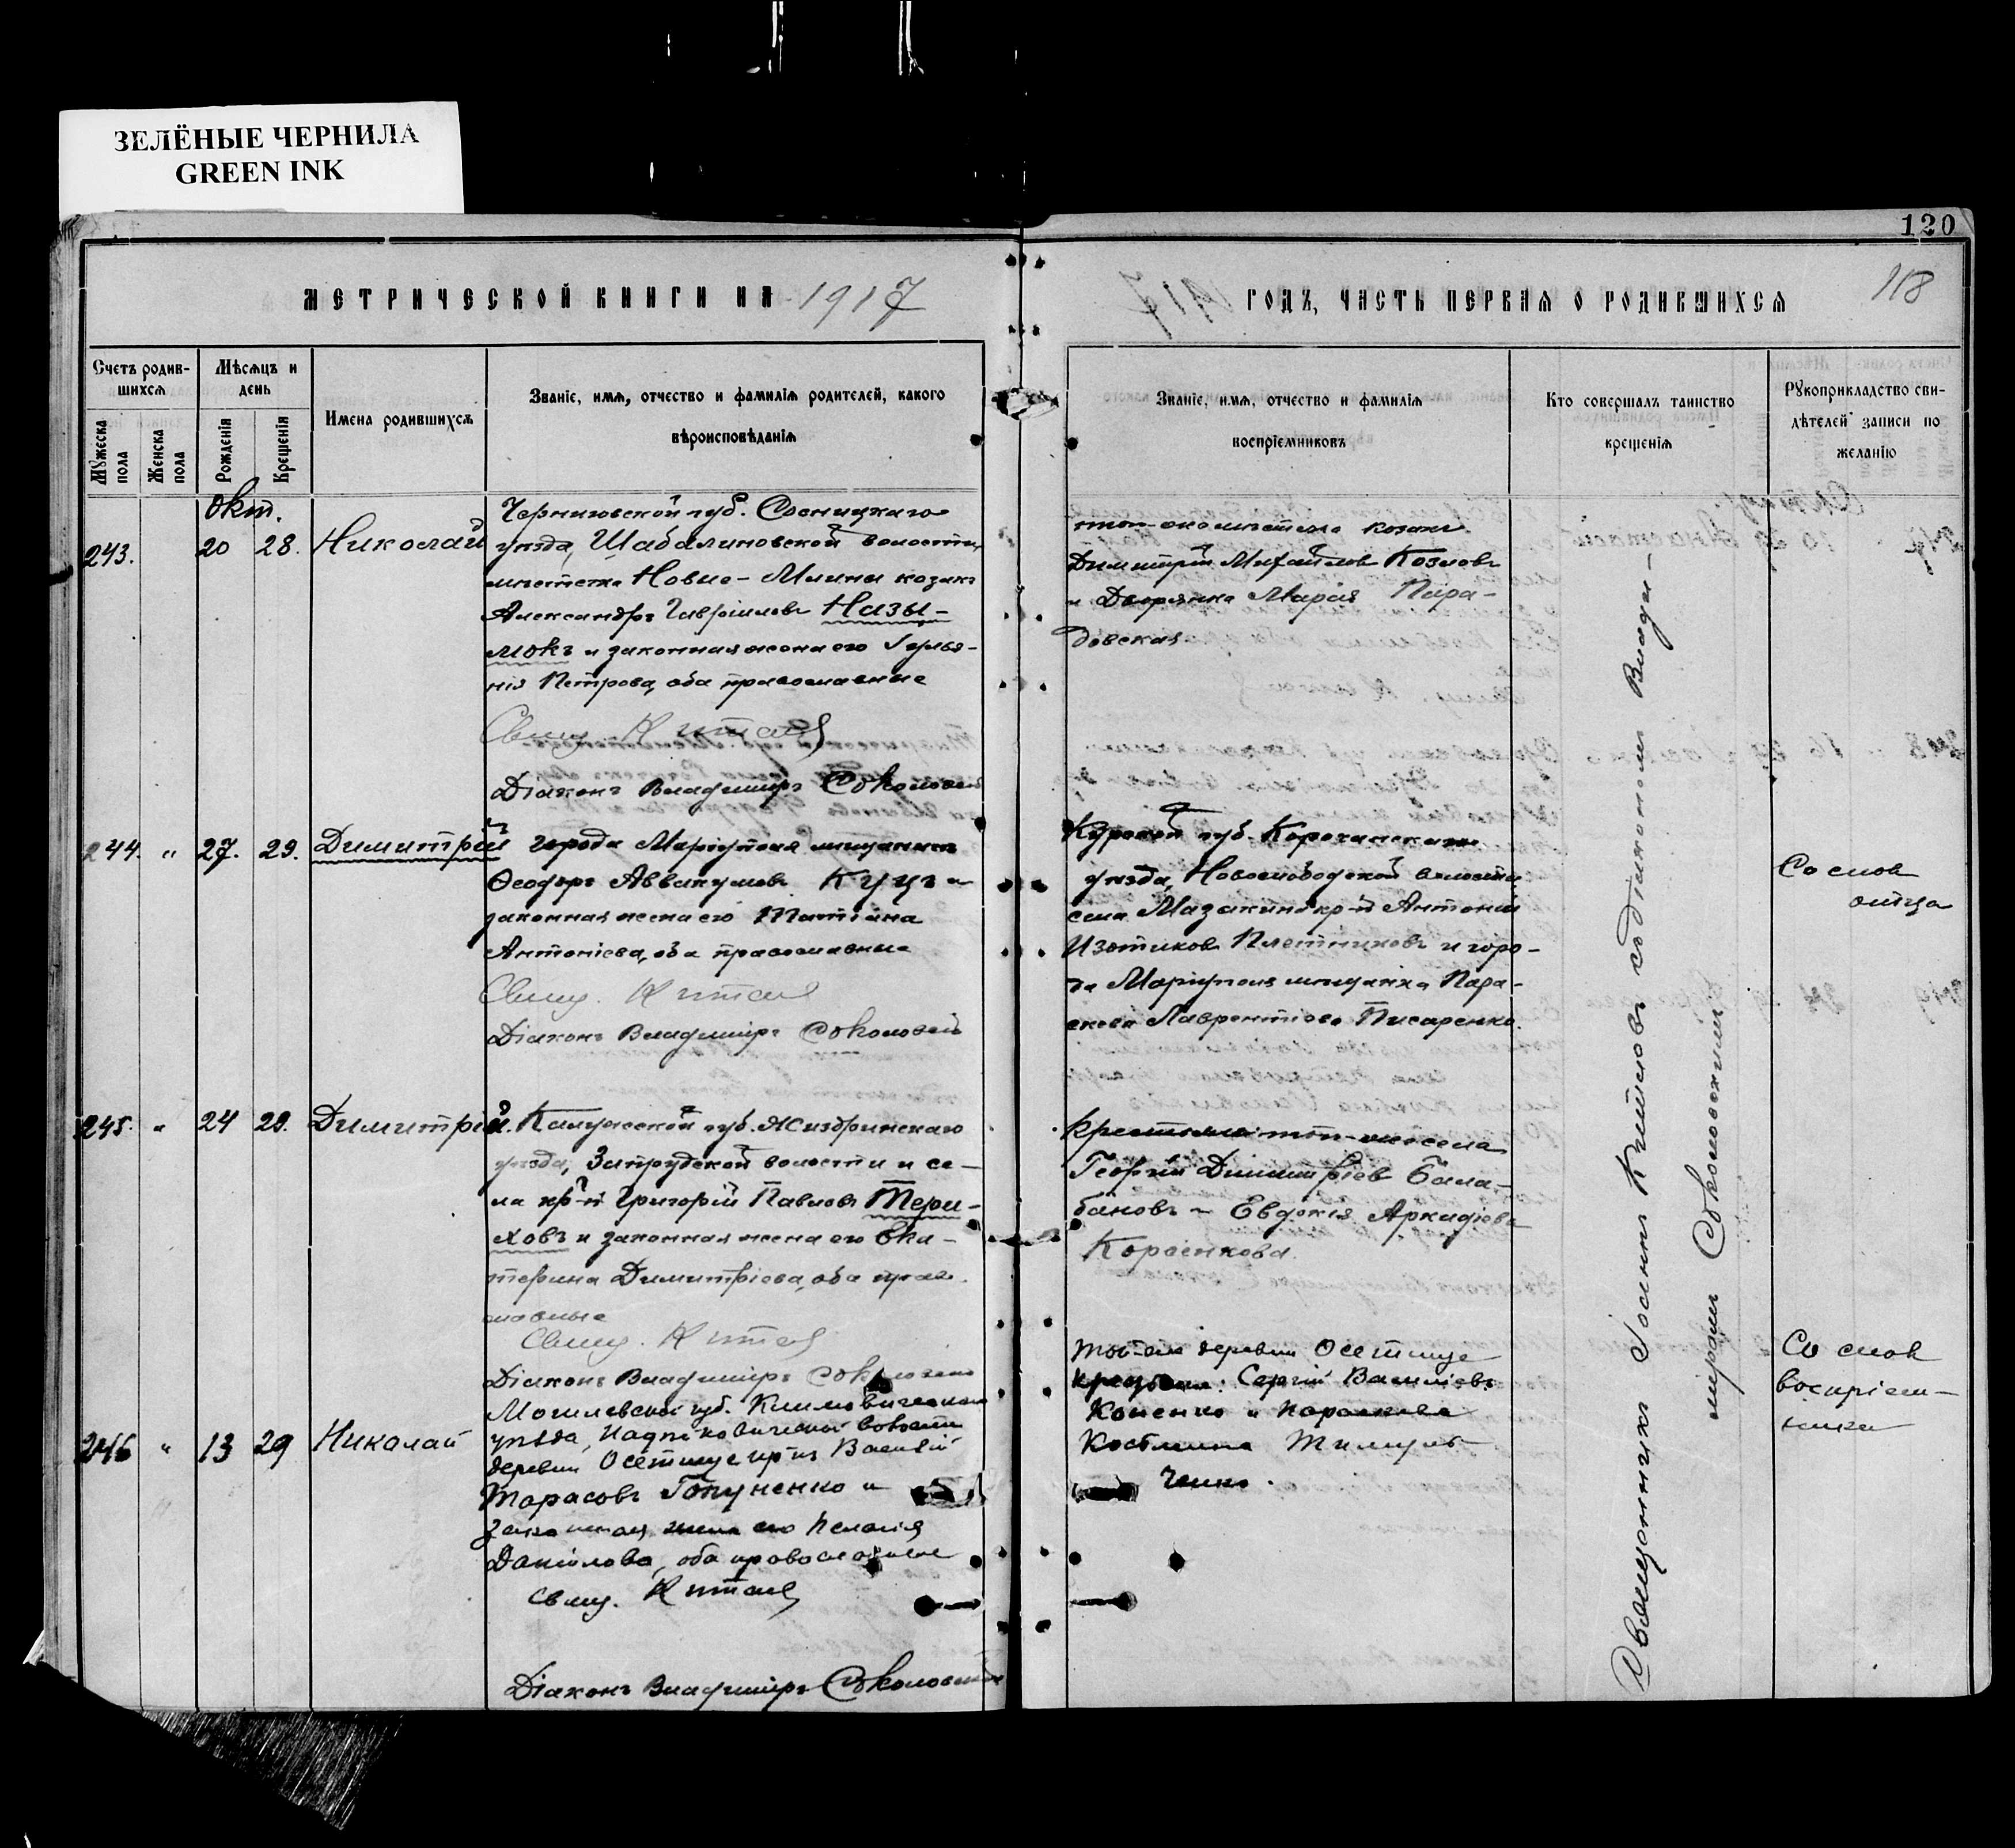 ЗЕЛЁНЫЕ ЧЕРНИЛА
GREEN INK
120
118
МЕТРИЧЕСКОЙ КНИГИ НА 1917
ГОДЪ, ЧАСТЬ ПЕРВАЯ О РОДИВШИХСЯ
Счетъ родив-
шихся
Мужеска
пола
Женска
пола
Мѣсяцъ и
день
Рожденія
Крещенія
Имена родившихся
Званіе, имя, отчество и фамилія родителей, какого
вѣроисповѣданія
Званіе, имя, отчество и фамилія
воспріемниковъ
Кто совершалъ таинство
крещенія
Рукоприкладство сви-
дѣтелей записи по
желанію
Окт.
243. 20 28. Николай
Черниговской губ. Сосницкаго
уѣзда, Шабалиновской волости,
мѣстечка Новые-Млины козакъ
Александръ Гавріиловъ Назы-
мокъ и законная жена его
Петрова, оба православные
Свящ. Китаев
Діаконъ Владимиръ Соколовскій
козакъ
Димитрій Михаиловъ Козловъ
и Дворянка Марія Пара-
довская
244. " 27. 29. Димитрій
города Маріуполя мѣщанинъ
Ѳеодоръ Аввакумовъ Куцъ и
законная жена его Татіана
Антоніева, оба православные
Свящ. Китаев
Діаконъ Владимиръ Соколовскій
Курской губ. Корочанскаго
уѣзда, Новослободской волости
села Мазикино кр-нъ Антоній
Изотиковъ Плетниковъ и горо-
да Маріуполя мѣщанка Пара-
скева Лаврентіева Писаренко.
Со слов
отца
245. " 24 29. Димитрій.
Калужской губ. Жиздринскаго
уѣзда, Запрудской волости и се-
ла кр-нъ Григорій Павловъ Тери-
ховъ и законная жена его Ека-
терина Димитріева, оба право-
славные
Свящ. Китаев
Діаконъ Владимиръ Соколовскій
Крестьяне того-же села
Георгій Димитріев Бала-
бановъ и Евдокія Аркадіева
246 " 13 29 Николай
Могилевской губ. Климовичскаго
уѣзда, волости
деревни кр-нъ Василій
Тарасовъ и
законная жена его Пелагія
Даніилова, оба православные
Свящ. Китаев
Діаконъ Владимиръ Соколовскій
той-же деревни
Сергій Васильевъ
и Параскева
Со слов
воспріем-
ника
Священникъ Іоаннъ Китаевъ съ діакономъ Влади-
миромъ Соколовскимъ